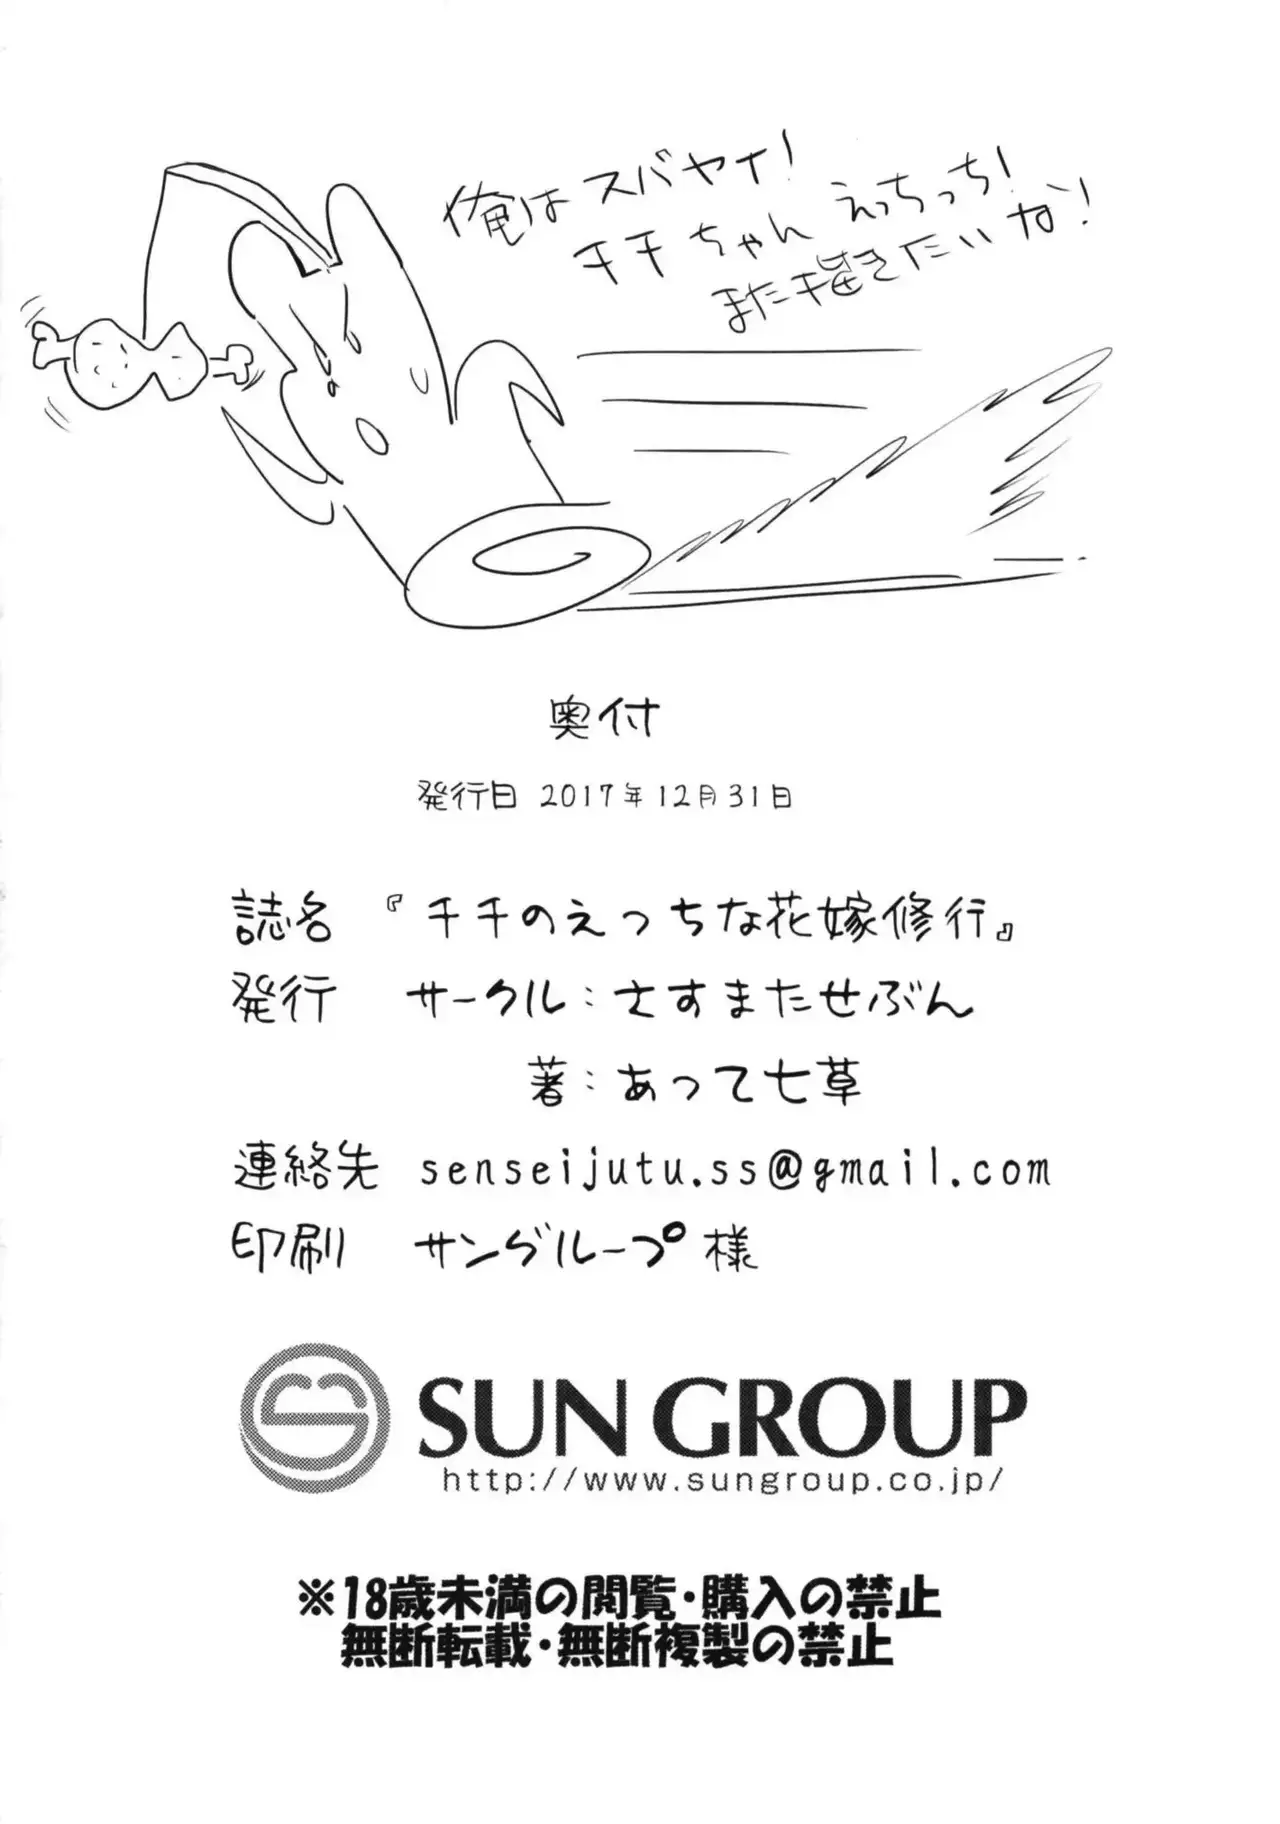 俺はスバヤイ!
チチちゃん えっちっち!
また描きたいな!
奥付
発行日 2017年12月31日
誌名 『チチのえっちな花嫁修行』
発行 サークル:さすまたせぶん
著:あって七草
連絡先 senseijutu.ss@gmail.com
印刷 サングループ様
SUN GROUP
http://www.sungroup.co.jp/
※18歳未満の閲覧・購入の禁止
無断転載・無断複製の禁止